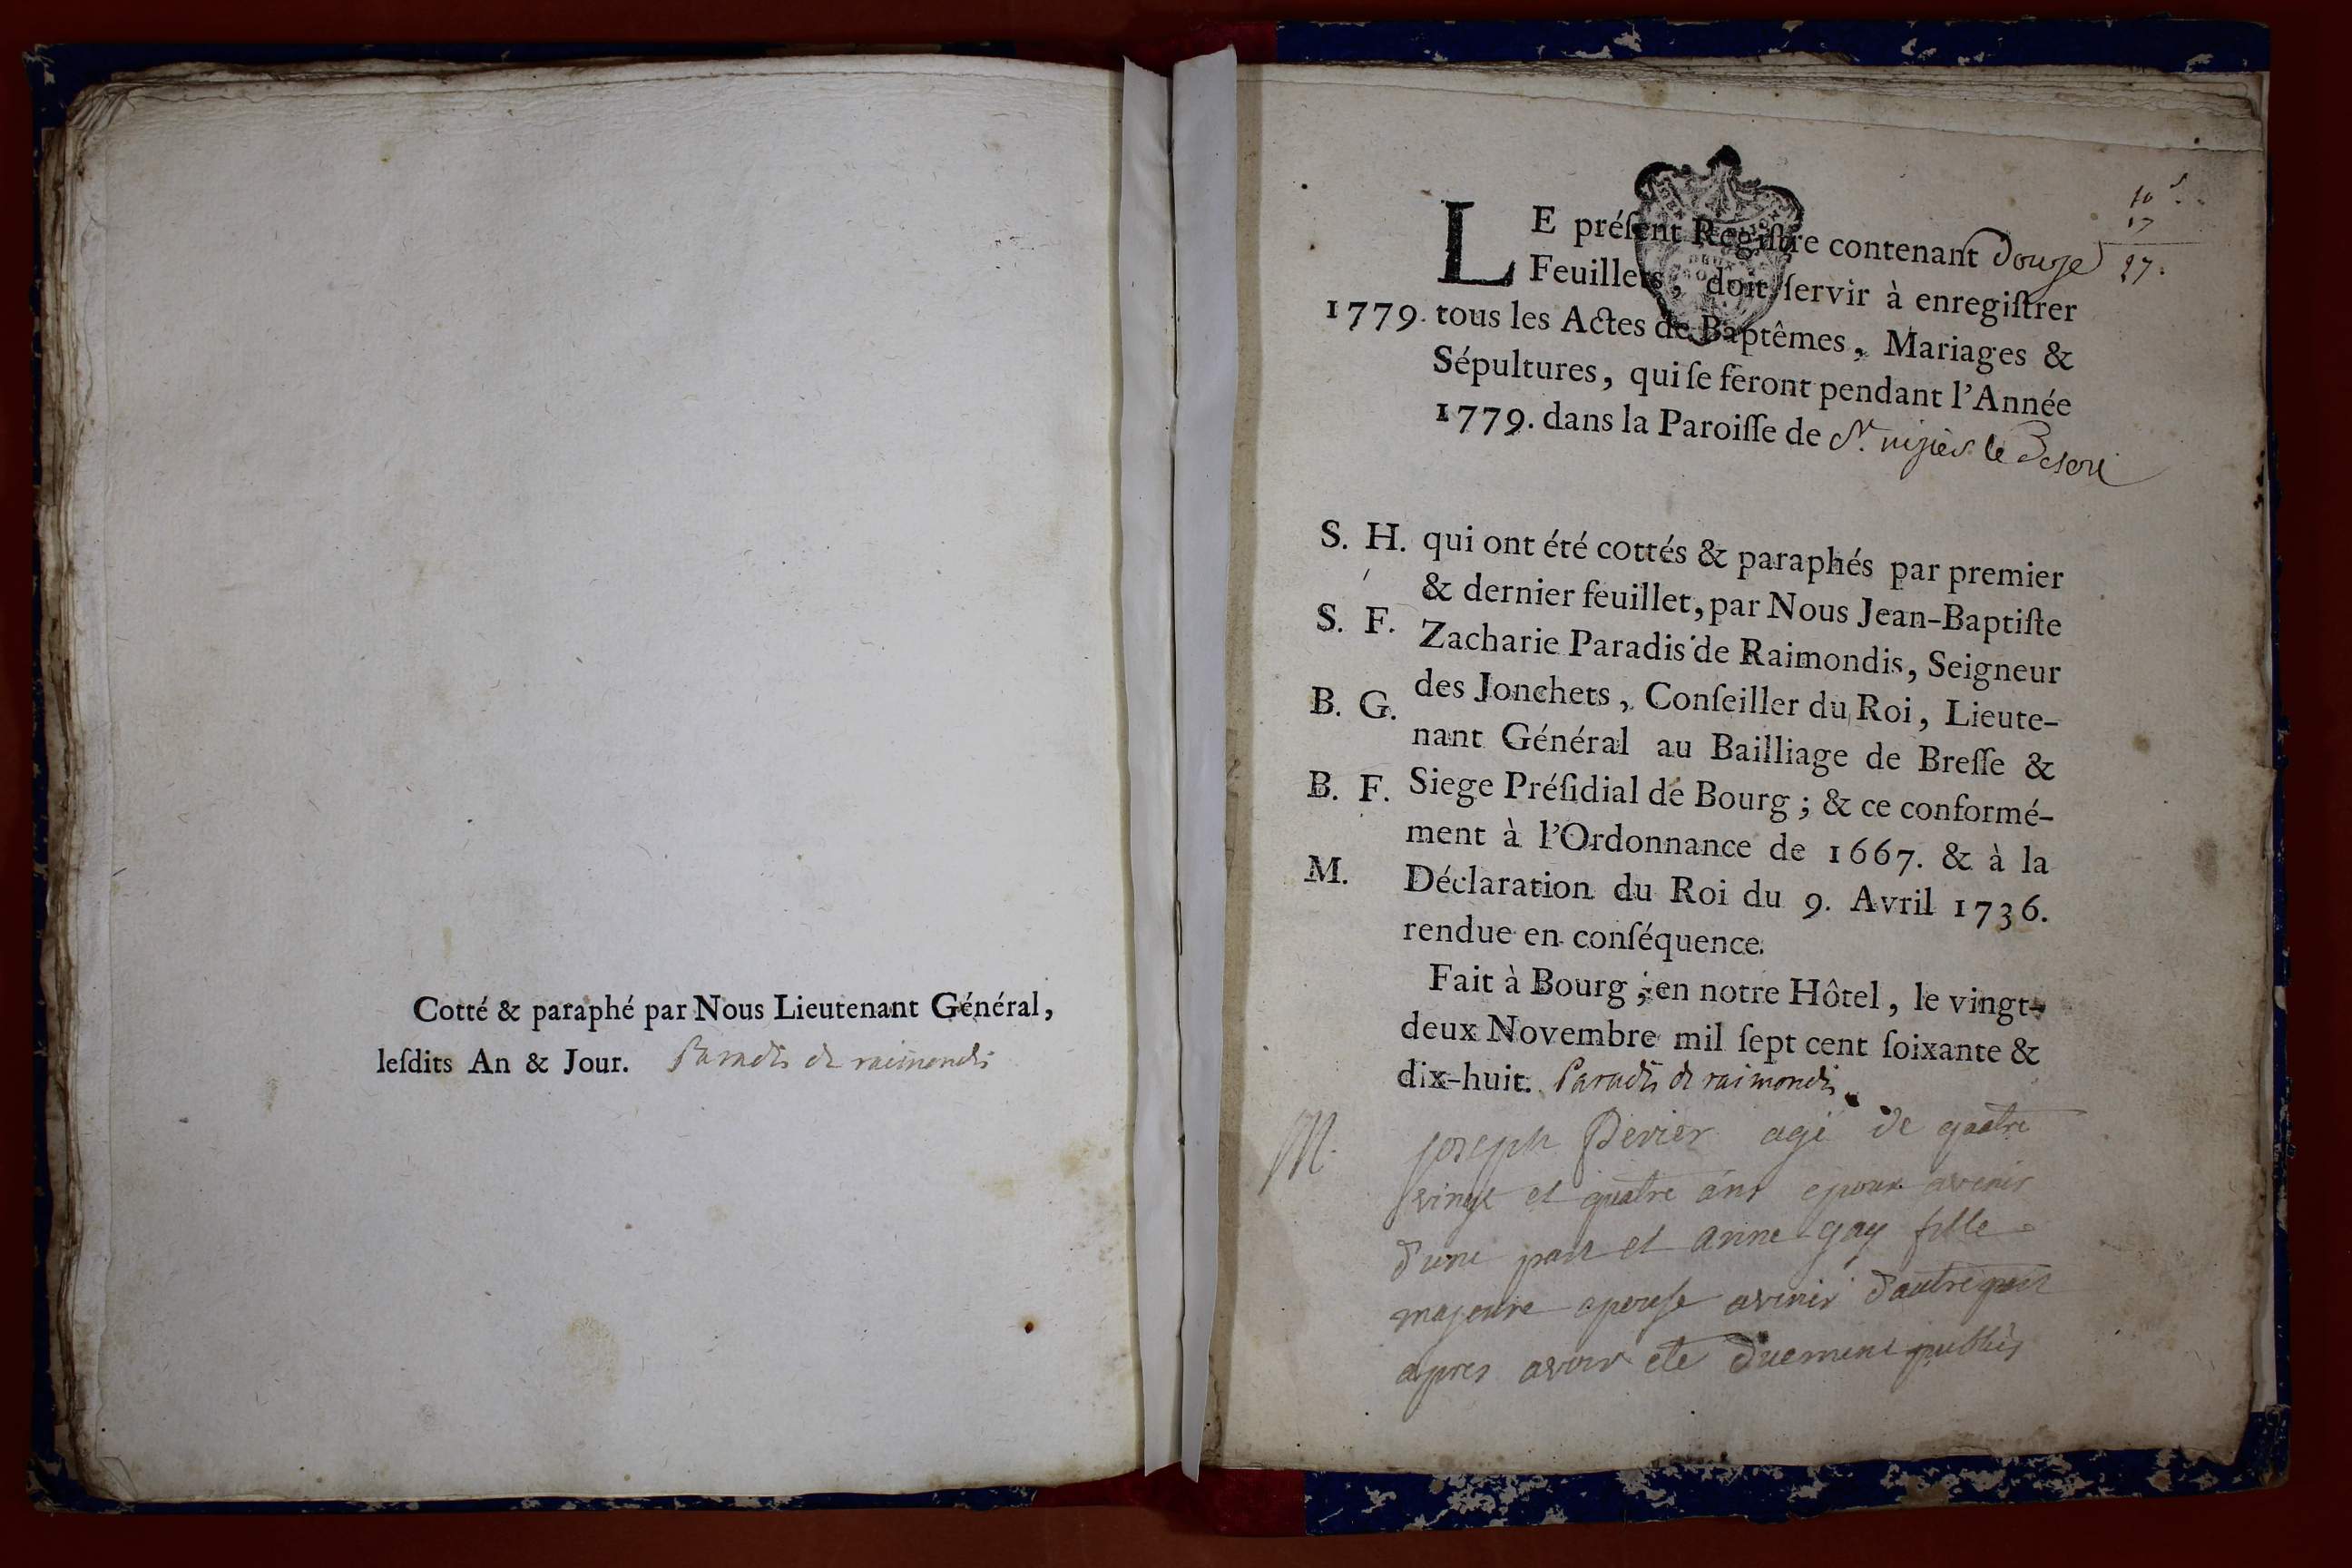 Cotté & paraphé par Nous Lieutenant Général,
leſdits An & Jour. Paradis de raimondis
10 s.
17
27.
LE préſent Regiſtre contenant douze
Feuillets, doit ſervir à enregiſtrer
1779. tous les Actes de Baptêmes, Mariages &
Sépultures, qui ſe feront pendant l'Année
1779. dans la Paroiſſe de St. nizier le Desert
S. H. qui ont été cottés & paraphés par premier
& dernier feuillet, par Nous Jean-Baptiſte
S. F. Zacharie Paradis de Raimondis, Seigneur
des Jonchets, Conſeiller du Roi, Lieute-
B. G. nant Général au Bailliage de Breſſe &
B. F. Siege Préſidial de Bourg ; & ce conformé-
ment à l'Ordonnance de 1667. & à la
M. Déclaration du Roi du 9. Avril 1736.
rendue en conſéquence.
Fait à Bourg ; en notre Hôtel, le vingt-
deux Novembre mil ſept cent ſoixante &
dix-huit. Paradis de raimondis
M. joseph Perier agé de quatre
vingt et quatre ans epoux avenir
d'une part et anne gay fille
majeure epouse avenir d'autre part
apres avoir eté duement publiés